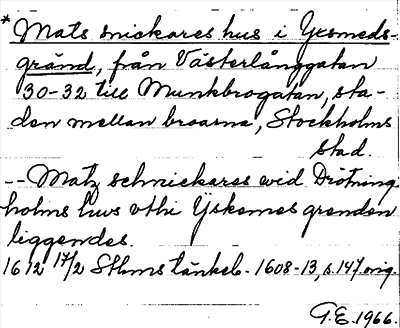 * Mats snickares hus i Yxsmeds-
gränd, från Västerlånggatan
30-32 till Munkbrogatan, sta-
den mellan broarna, Stockholms
stad.
-- Matz schnickares wid Drötning-
holms huus uthi Yskemes grenden
liggendes.
1612 17/2 Sthms tänkeb. 1608-13, s. 147 orig.
G.E. 1966.